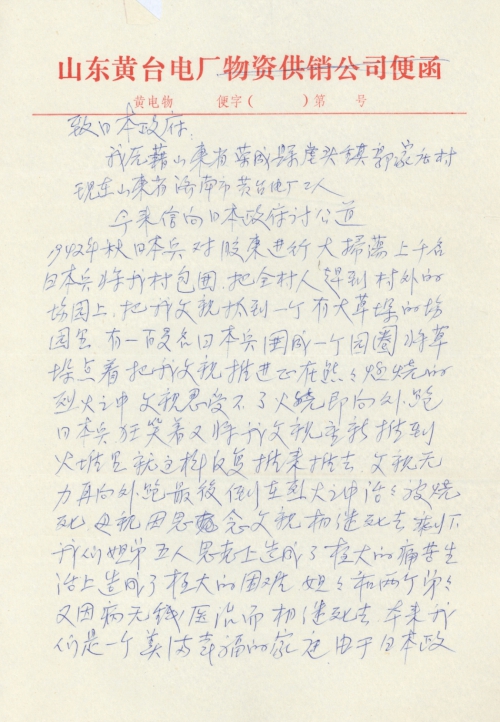 山东黄台电厂物资供销公司便函
黄电物 便字( )第 号
致日本政府:
我原藉山东省荣成县崖头镇郭家庄村
现在山东省济南市黄台电厂工人
今来信向日本政府讨公道
1942年秋日本兵对胶东进行大掃荡上千名
日本兵将我村包围.把全村人赶到村外的
场园上.把我父親抓到一个有大草垛的场
园里 有一百多名日本兵围成一个园圈将草
垛点着把我父親推进正在熊々燃烧的
烈火之中 父親忍受不了火烧即向外跑
日本兵狂笑着又将我父親重新推到
火堆里就这样反复推来推去.父親无
力再向外跑最後倒在烈火之中活々被烧
死 母親因思念父親相继死去 剩下
我们姐弟五人思想上造成了极大的痛苦生
活上造成了极大的困难 姐々和两个弟々
又因病无钱医治而相继死去 本来我
们是一个美满幸福的家庭由于日本政